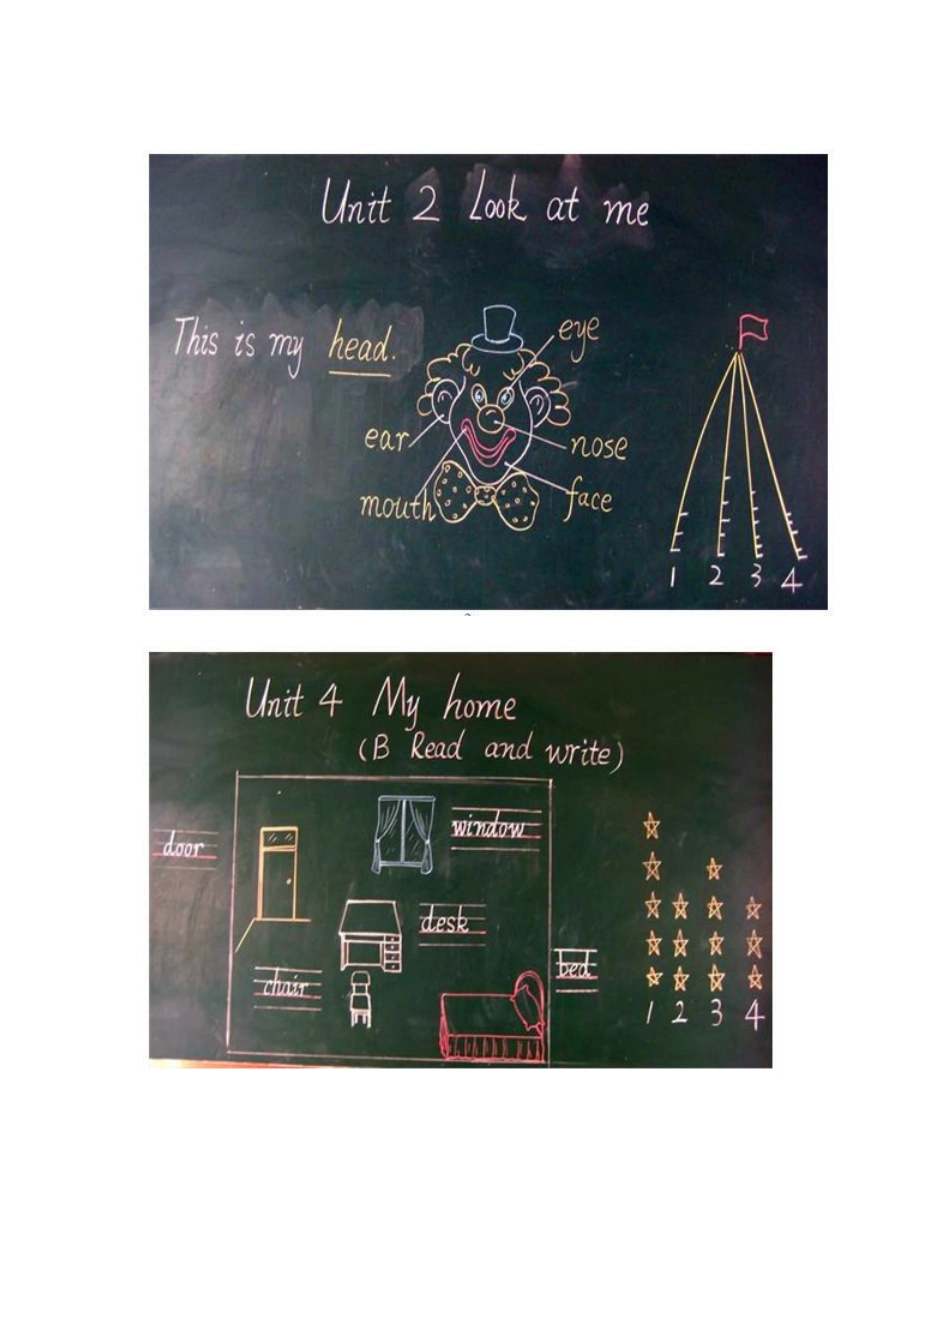 Unit 2 Look at me
This is my head.
eye
ear
nose
mouth
face
1 2 3 4
Unit 4 My home
(B Read and write)
window
door
desk
bed
chair
1 2 3 4